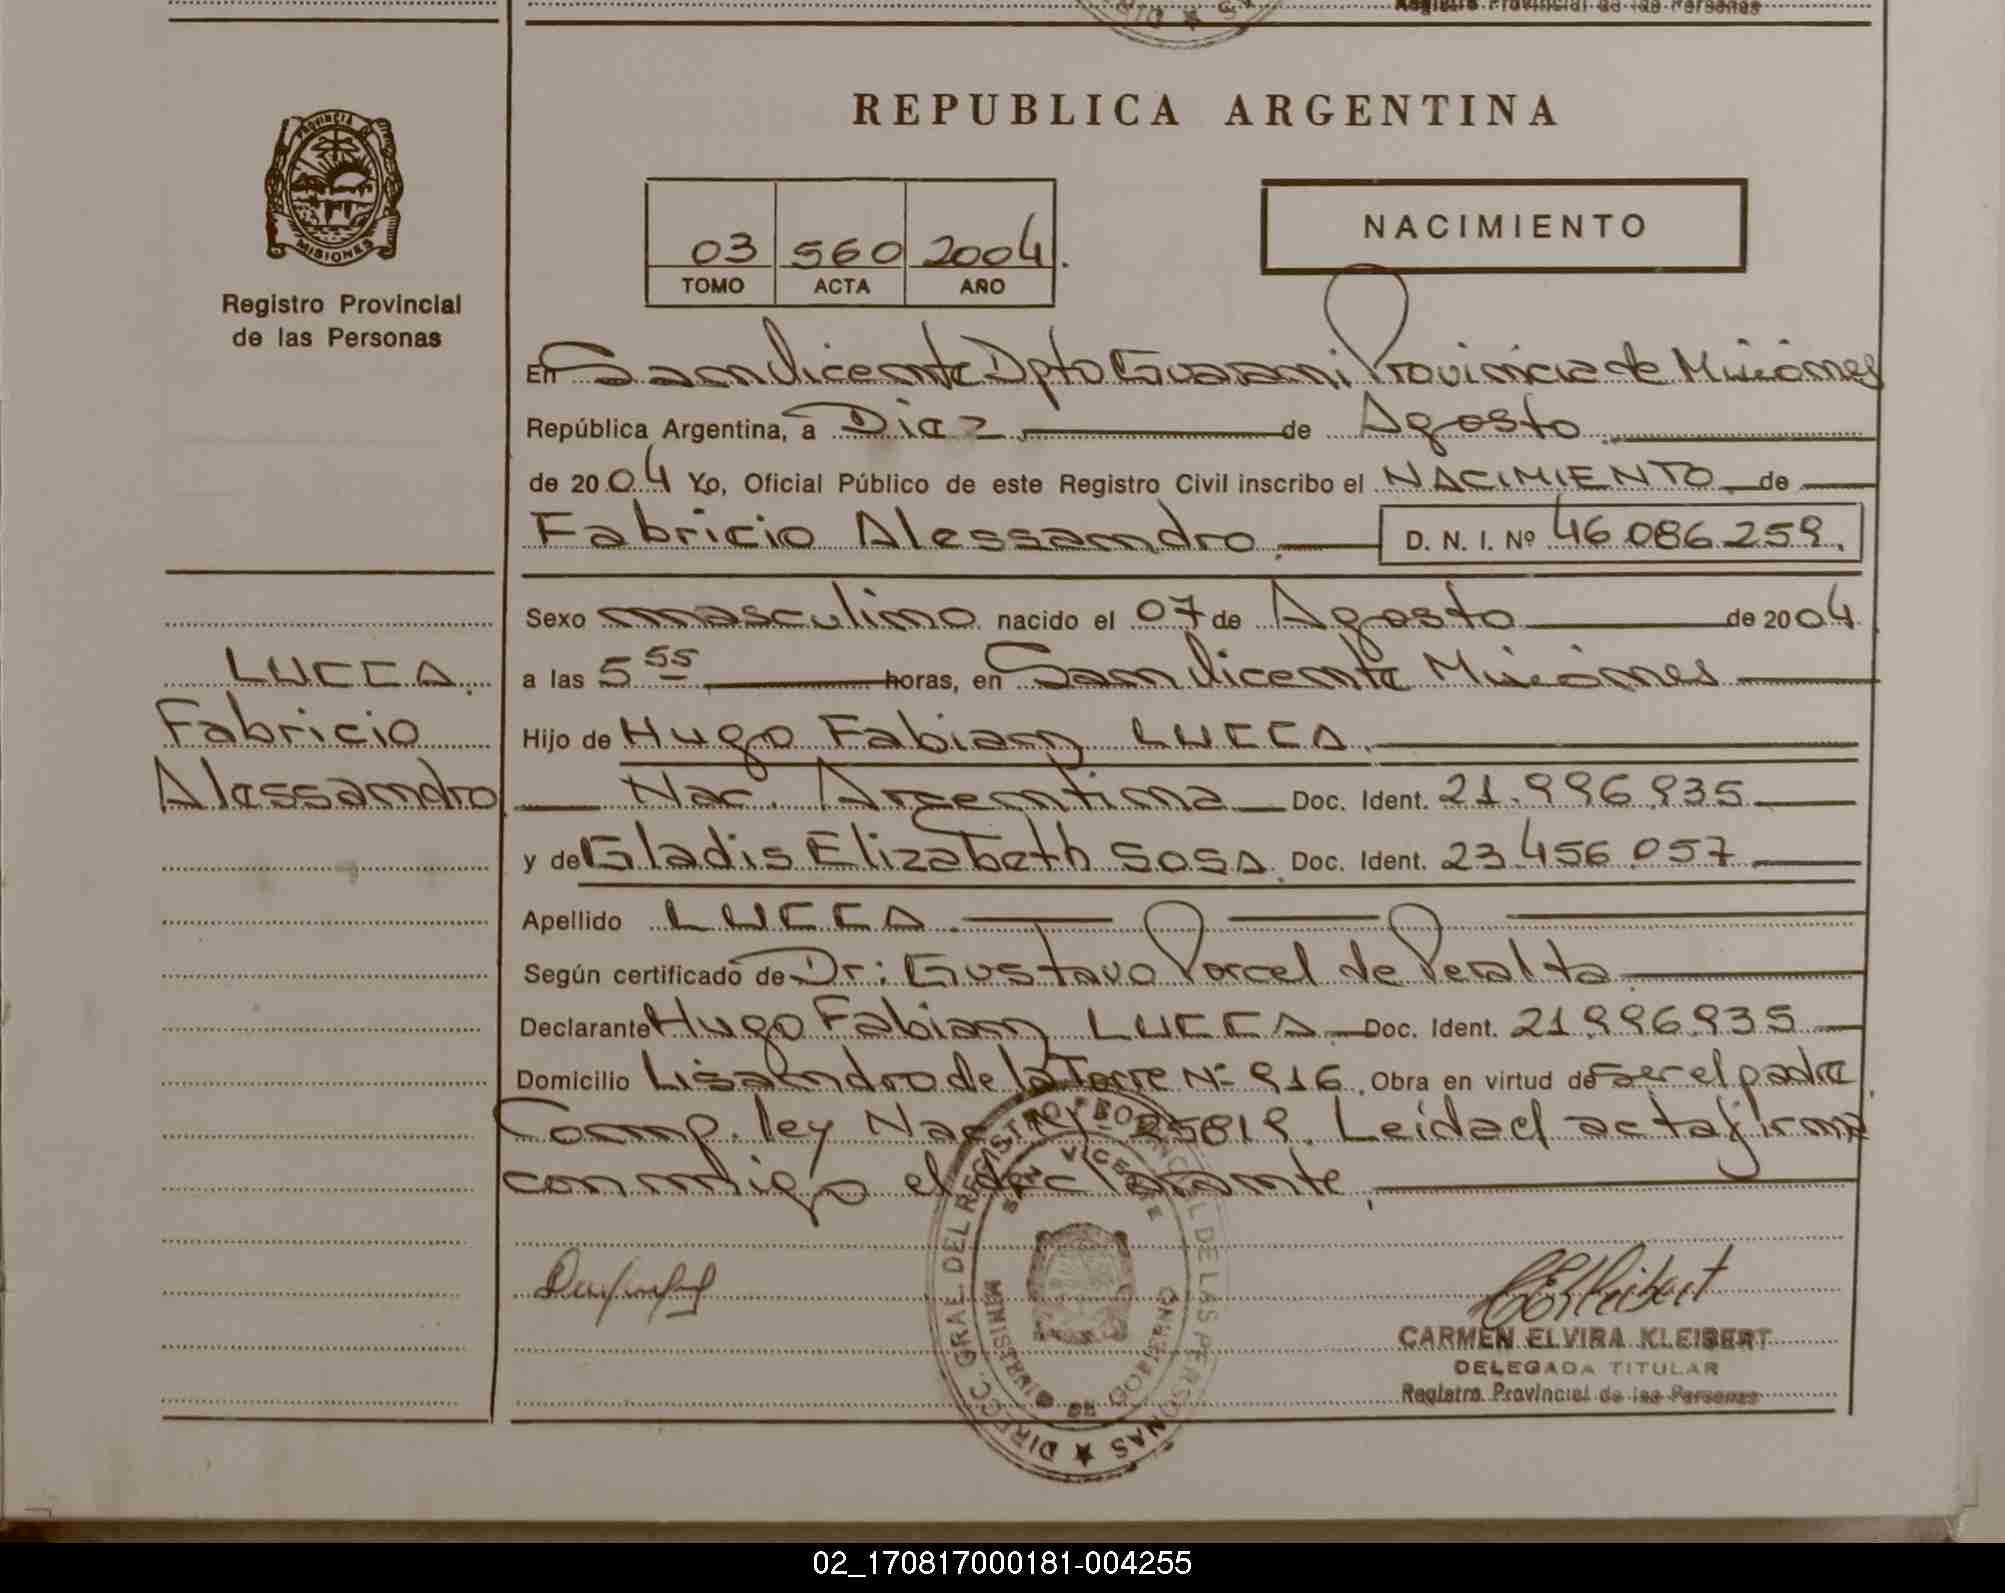 Registro Provincial de las Personas
REPUBLICA ARGENTINA
PROVINCIA DE
MISIONES
Registro Provincial
de las Personas
03 560 2004.
TOMO ACTA AÑO
NACIMIENTO
En San Vicente Dpto Guarani Provincia de Misiones
República Argentina, a Diez de Agosto
de 2004 Yo, Oficial Público de este Registro Civil inscribo el NACIMIENTO de
Fabricio Alessandro. D. N. I. Nº 46.086.259.
Sexo masculino nacido el 07 de Agosto de 2004
LUCCA.
Fabricio
Alessandro
a las 5 55 horas, en San Vicente Misiones
Hijo de Hugo Fabian LUCCA.
Nac. Argentina Doc. Ident. 21.996.935
y de Gladis Elizabeth SOSA. Doc. Ident. 23.456.057
Apellido LUCCA.
Según certificado de Dr: Gustavo Porcel de Peralta
Declarante Hugo Fabian LUCCA Doc. Ident. 21.996.935
Domicilio Lisandro de la Torre Nº 916. Obra en virtud de ser el padre.
Comp. ley Nac Nº 25819. Leida el acta firma
conmigo el declarante.
DIRECC. GRAL. DEL REGISTRO PROVINCIAL DE LAS PERSONAS
SAN VICENTE
MINISTERIO DE GOBIERNO
CARMEN ELVIRA KLEIBERT
DELEGADA TITULAR
Registro Provincial de las Personas
02_170817000181-004255